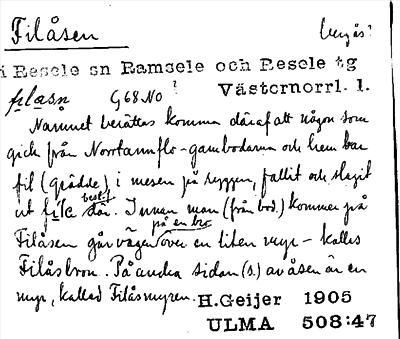 Filåsen bergås?
i Resele sn Ramsele och Resele tg
filåsn G68.No ! Västernorrl. l.
Namnet berättas komma däraf att någon som
gick från Norrtannflo-gambodarna och hem bar
fil (grädde) i mesen på ryggen, fallit och slagit
ut filbest där. Innan man (från bod.) kommer på
Filåsen går vägen på en bro över en liten myr – kallas
Filåsbron. På andra sidan (s.) av åsen är en
myr, kallad Filåsmyren. H.Geijer 1905
ULMA 508:47